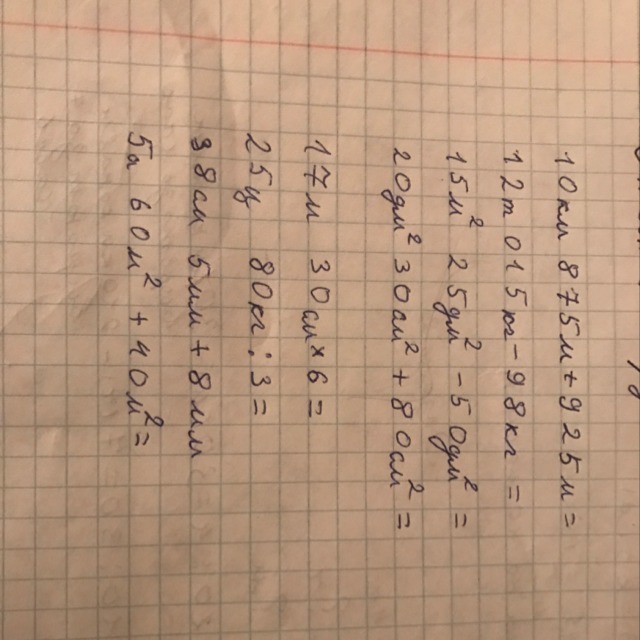 10км 875м+925м=
12т 015кг-98кг=
15м² 25дм²-50дм²=
20дм² 30см²+80см²=
17м 30см×6=
25ц 80кг:3=
38см 5мм+8мм
5а 60м²+40м²=